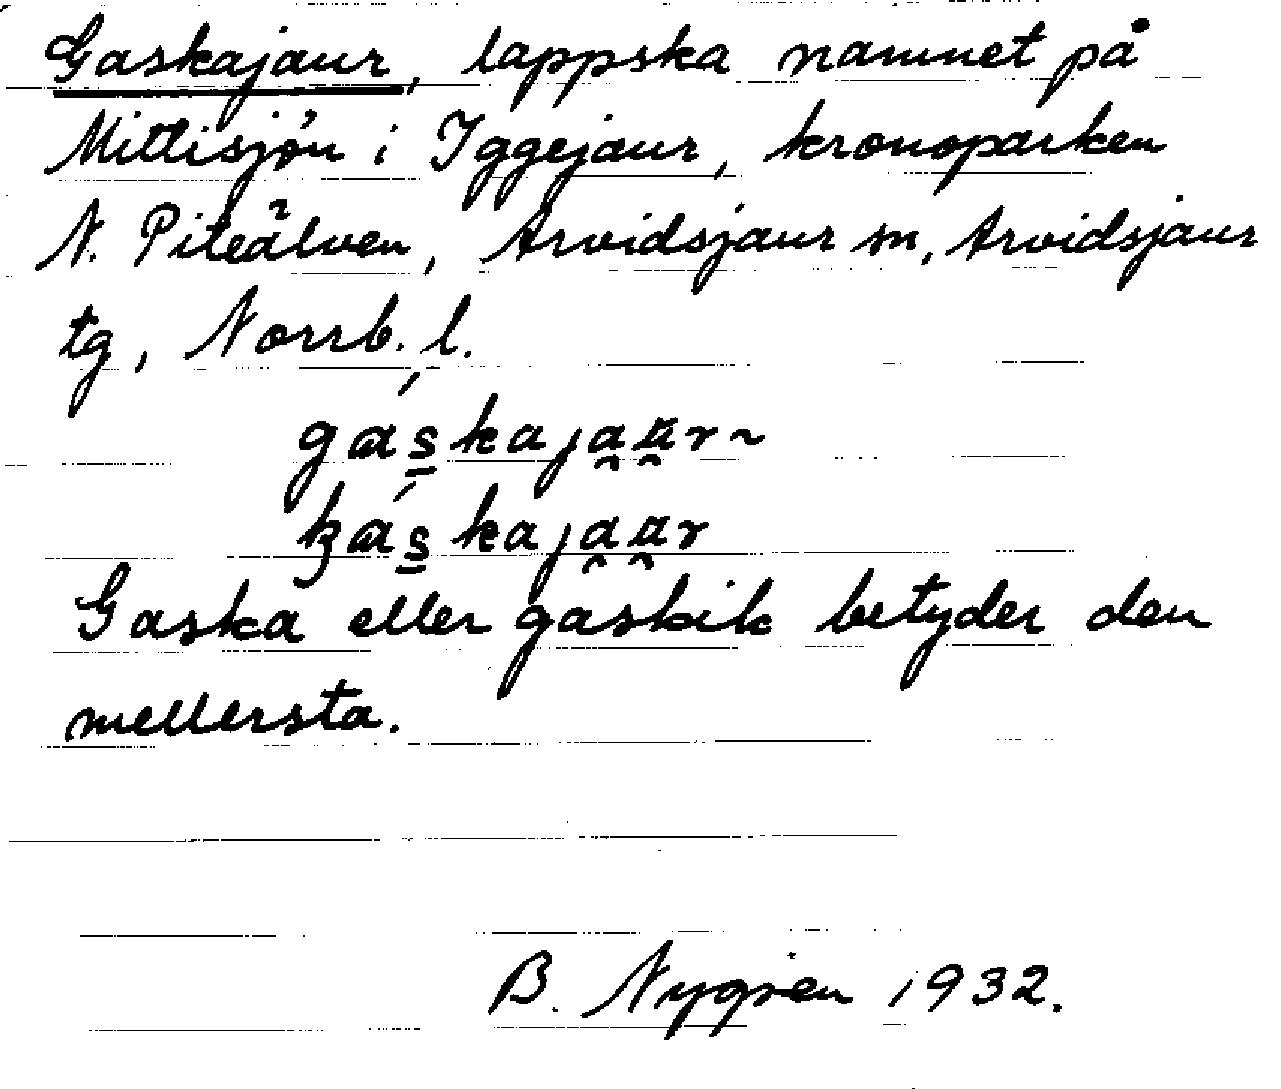 Gaskajaur, lappska namnet på
Mittisjön i Iggejaur, kronoparken
N. Piteälven, Arvidsjaur sn, Arvidsjaur
tg, Norrb. l.
gáskajaur ~
káskajaur
Gaska eller gaskik betyder den
mellersta.
B. Nygren 1932.